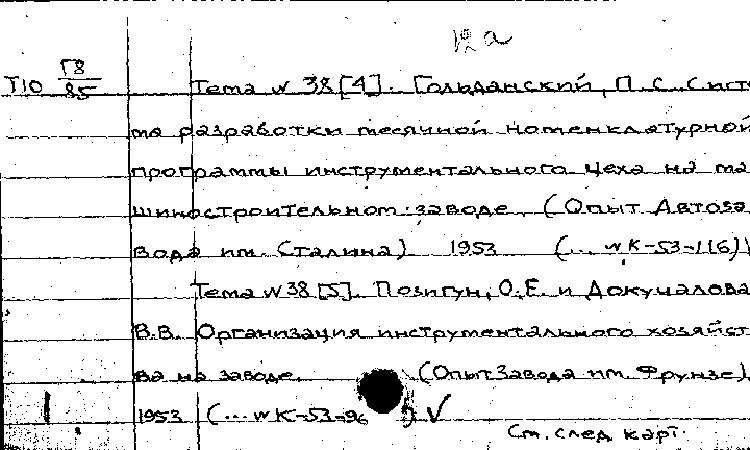 12 а
Т10 Г8/85 Тема № 38 [4]. Гольданский, П. С. Систе
ма разработки месячной номенклатурной
программы инструментального цеха на ма
шиностроительном заводе. (Опыт Автоза
вода им. Сталина) 1953 (... № К-53-116)
Тема № 38 [5]. Позигун, О.Е. и Докучалова
В.В. Организация инструментального хозяйст
ва на заводе. (Опыт завода им. Фрунзе).
1 1953 (... № К-53-96 V
См. след карт.